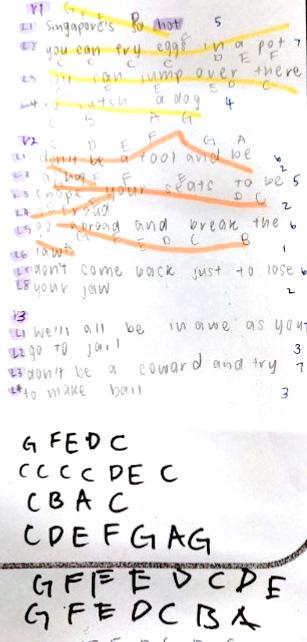 V1 G F
L1 Singapore's so hot 5
L2 you can fry eggs in a pot 7
C C C C D E F
can jump over there
F E E D C
L4 catch a dog 4
C B A G
V2 C D E F G A
L1 don't be a fool and be 6
L2 2
L3 your seats to be 5
D C
L4 fraud 2
L5 go abroad and break the 6
G F E D C B
L6 laws 1
L7 don't come back just to lose 6
L8 your jaw 2
V3
L1 we'll all be in awe as you 7
L2 go to jail 3
L3 don't be a coward and try 7
L4 to make bail 3
G F E D C
C C C C D E C
C B A C
C D E F G A G
G F E E D C D E
G F E D C B A